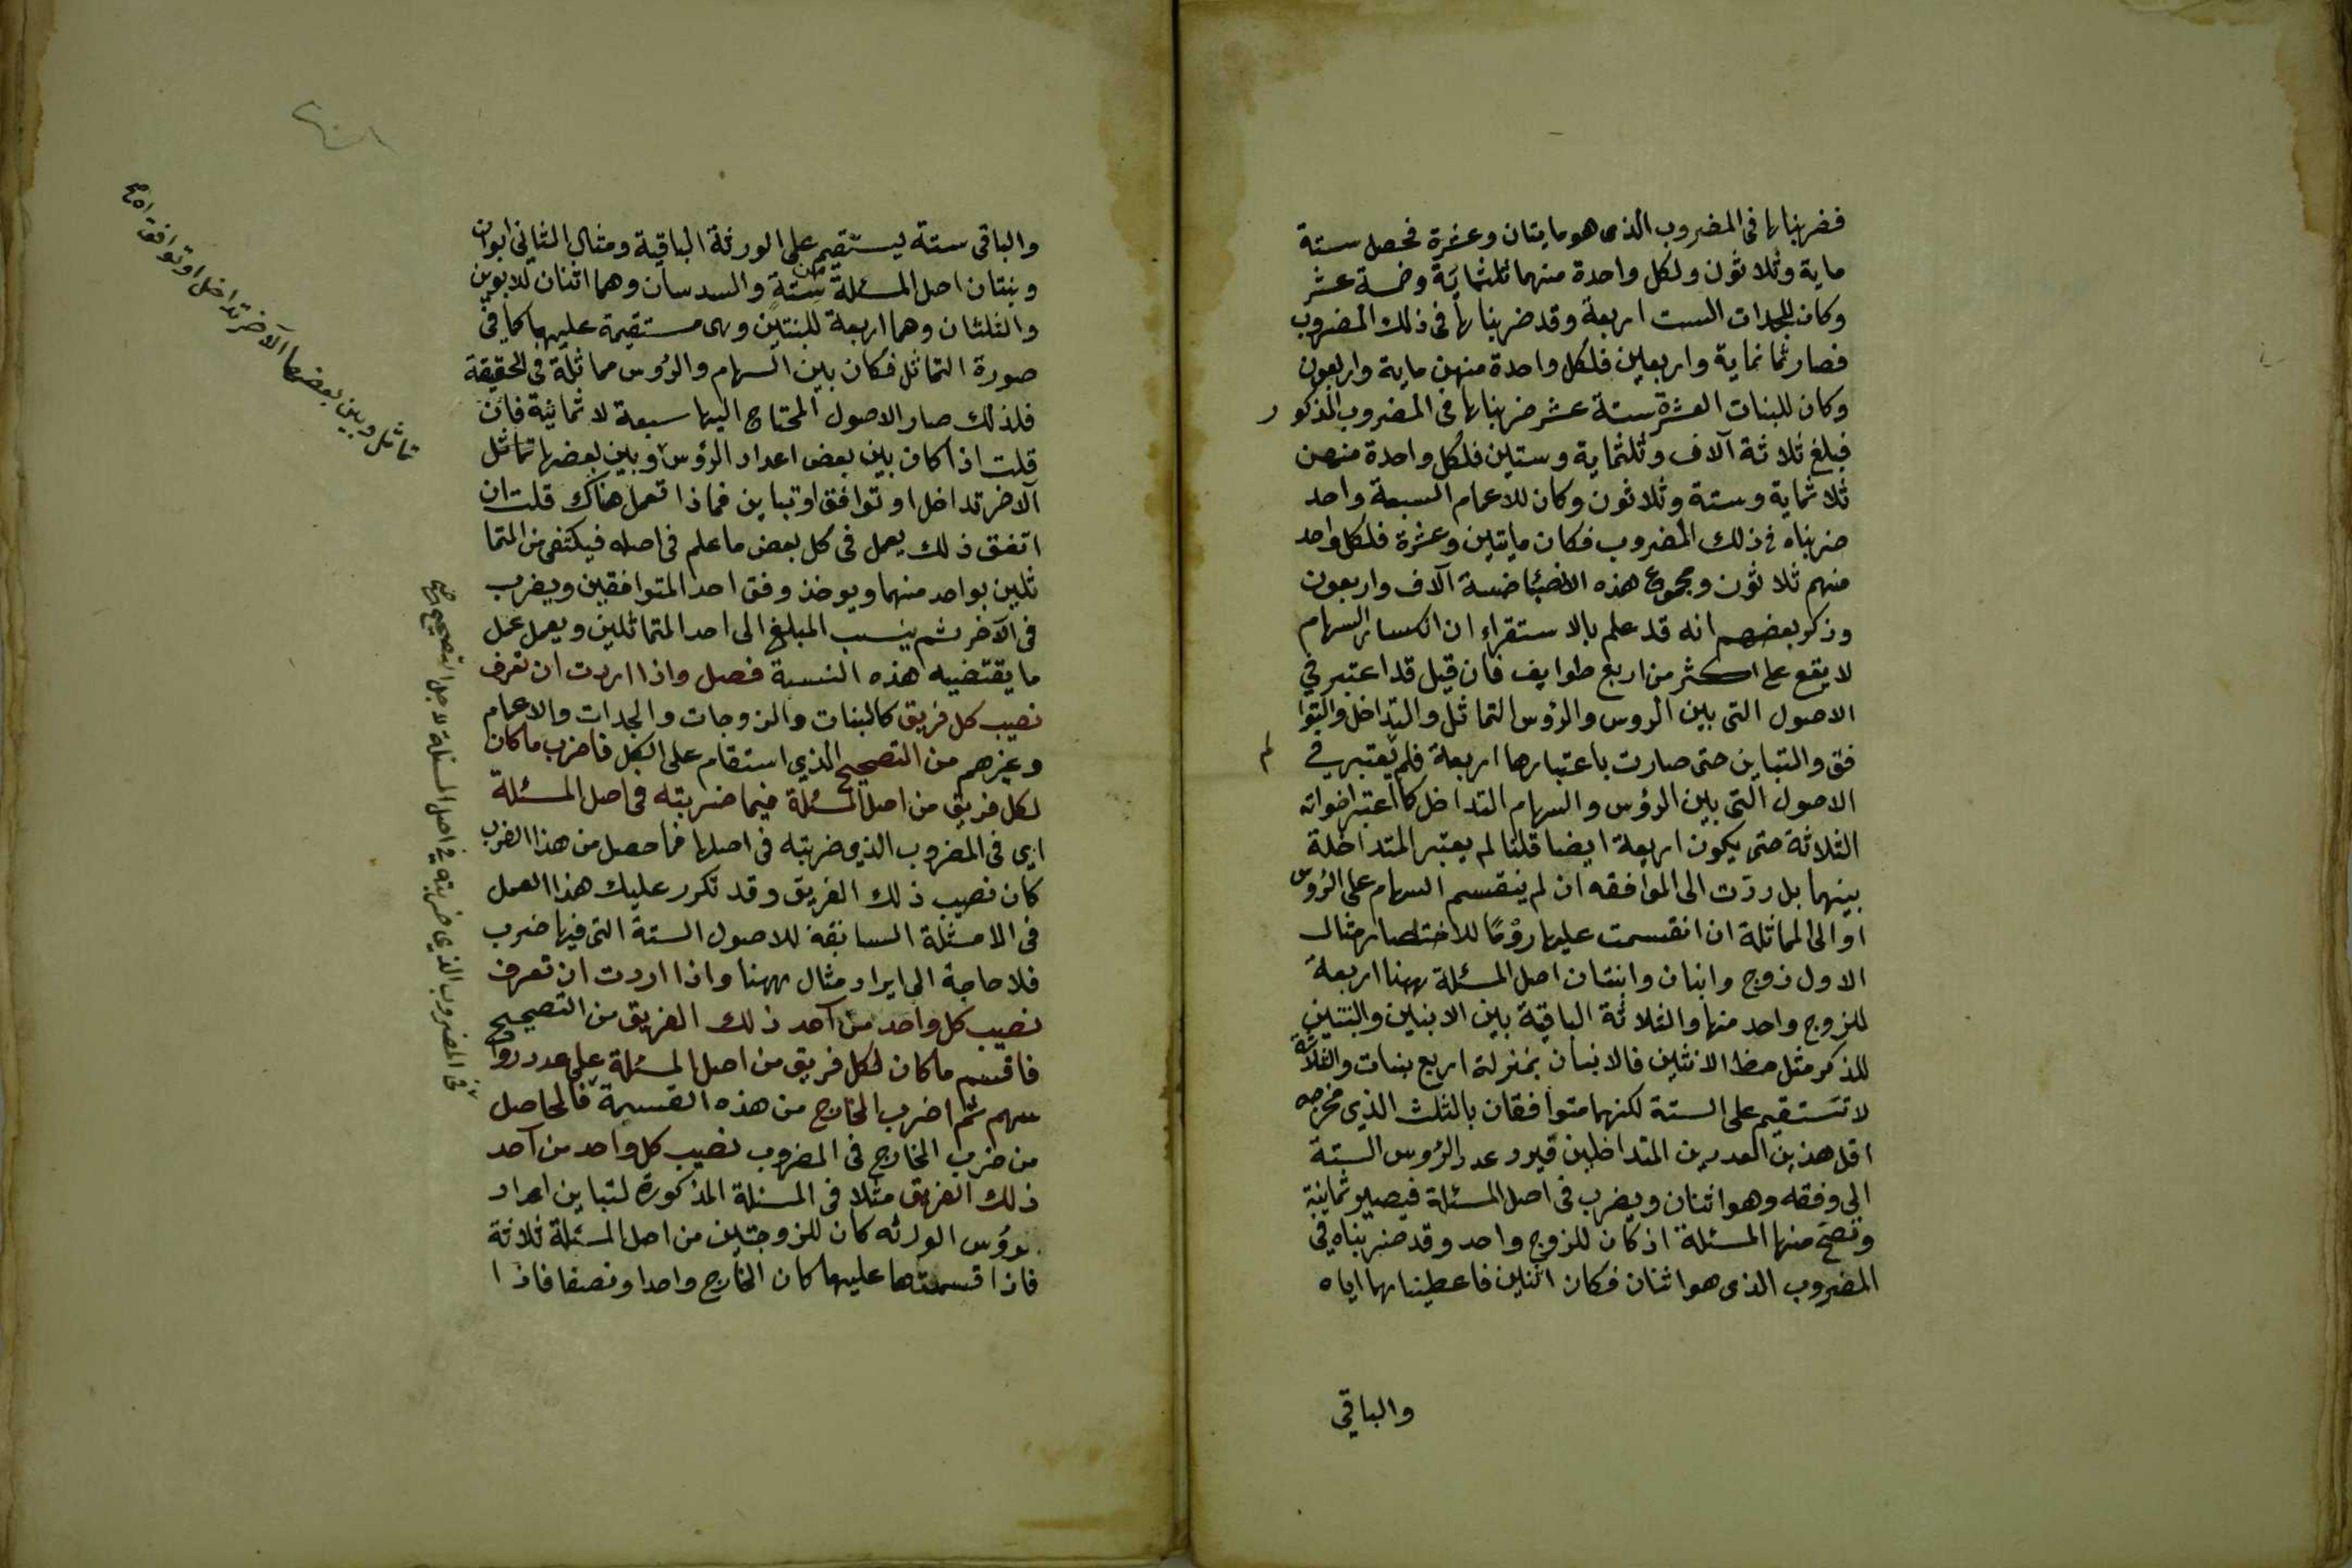 فضربناها في المضروب الذى هو مايتان وعشرة فحصل ستة
ماية وثلاثون ولكل واحدة منهما ثلثماية وخمسة عشر
وكان للجدات الست اربعة وقد ضربناها فى ذلك المضروب
فصار ثمانماية واربعين فلكل واحدة منهن ماية واربعون
وكان للبنات العشرة ستة عشر ضربناها فى المضروب المذكور
فبلغ ثلاثة آلاف وثلثماية وستين فلكل واحدة منهن
ثلاثماية وستة وثلاثون وكان للاعمام السبعة واحد
ضربناه في ذلك المضروب فكان مايتين وعشرة فلكل واحد
منهم ثلاثون ومجموع هذه الانصباء خمسة آلاف واربعون
وذكر بعضهم انه قد علم بالاستقراء ان انكسار السهام
لا يقع على اكثر من اربع طوايف فان قيل قد اعتبر في
الاصول التى بين الروس والرؤس التماثل والتداخل والتوا
فق والتباين حتى صارت باعتبارها اربعة فلم لم يعتبر في
الاصول التى بين الرؤس والسهام التداخل كما اعتبر اخواته
الثلاثة حتى يكون اربعة ايضا قلنا لم يعتبر المتداخلة
بينهما بل ردّت الى الموافقه ان لم ينقسم السهام على الرؤس
او الى المماثلة ان انقسمت عليها رومًا للاختصار مثال
الاول زوج وابنان وابنتان اصل المسئلة ههنا اربعة
للزوج واحد منها والثلاثة الباقية بين الابنين والبنتين
للذكر مثل حظ الانثيين فالابنان بمنزلة اربع بنات والثلاثة
لا تستقيم على الستة لكنهما متوافقان بالثلث الذي مخرجه
اقل هذين العددين المتداخلين فيرد عدد الرؤس الستة
الى وفقه وهو اثنان ويضرب فى اصل المسئلة فيصير ثمانية
وتصح منها المسئلة اذ كان للزوج واحد وقد ضربناه فى
المضروب الذى هو اثنان فكان اثنين فاعطيناهما اياه
والباقي
والباقى ستة ليستقيم على الورثة الباقية ومثال الثاني ابوان
وبنتان اصل المسئلة من ستة والسدسان وهما اثنان للابوين
والثلثان وهما اربعة للبنتين وهى مستقيمة عليهما كما في
صورة التماثل فكان بين السهام والرؤس مماثلة في الحقيقة
فلذلك صار الاصول المحتاج اليها سبعة لا ثمانية فان
قلت اذا كان بين بعض اعداد الرؤس وبين بعضها تماثل
الآخر تداخل او توافق او تباين فماذا تعمل هناك قلت ان
اتفق ذلك يعمل فى كل بعض ما علم فى اصله فيكتفى من المتما
ثلين بواحد منهما ويوخذ وفق احد المتوافقين ويضرب
فى الآخر ثم ينسب المبلغ الى احد المتماثلين ويعمل عمل
ما يقتضيه هذه النسبة فصل واذا اردت ان تعرف
نصيب كل فريق كالبنات والزوجات والجدات والاعمام
وغيرهم من التصحيح الذي استقام على الكل فاضرب ما كان
لكل فريق من اصل المسئلة فيما ضربته فى اصل المسئلة
اى فى المضروب الذي ضربته فى اصلها فما حصل من هذا الضرب
كان نصيب ذلك الفريق وقد تكرر عليك هذا العمل
فى الامثلة السابقة للاصول الستة التى فيها ضرب
فلا حاجة الى ايراد مثال ههنا واذا اردت ان تعرف
نصيب كل واحد من آحد ذلك الفريق من التصحيح
فاقسم ما كان لكل فريق من اصل المسئلة على عدد رؤ
سهم ثم اضرب الخارج من هذه القسمة فالحاصل
من ضرب الخارج فى المضروب نصيب كل واحد من آحد
ذلك الفريق مثلا فى المسئلة المذكورة لتباين اعداد
رؤس الورثه كان للزوجتين من اصل المسئلة ثلاثة
فاذا قسمتها عليهما كان الخارج واحدا ونصفا فاذا
تماثل وبين بعضها الآخر تداخل او توافق اه صح
في المضروب الذي ضربته في اصل المسئلة لاجل التصحيح صح